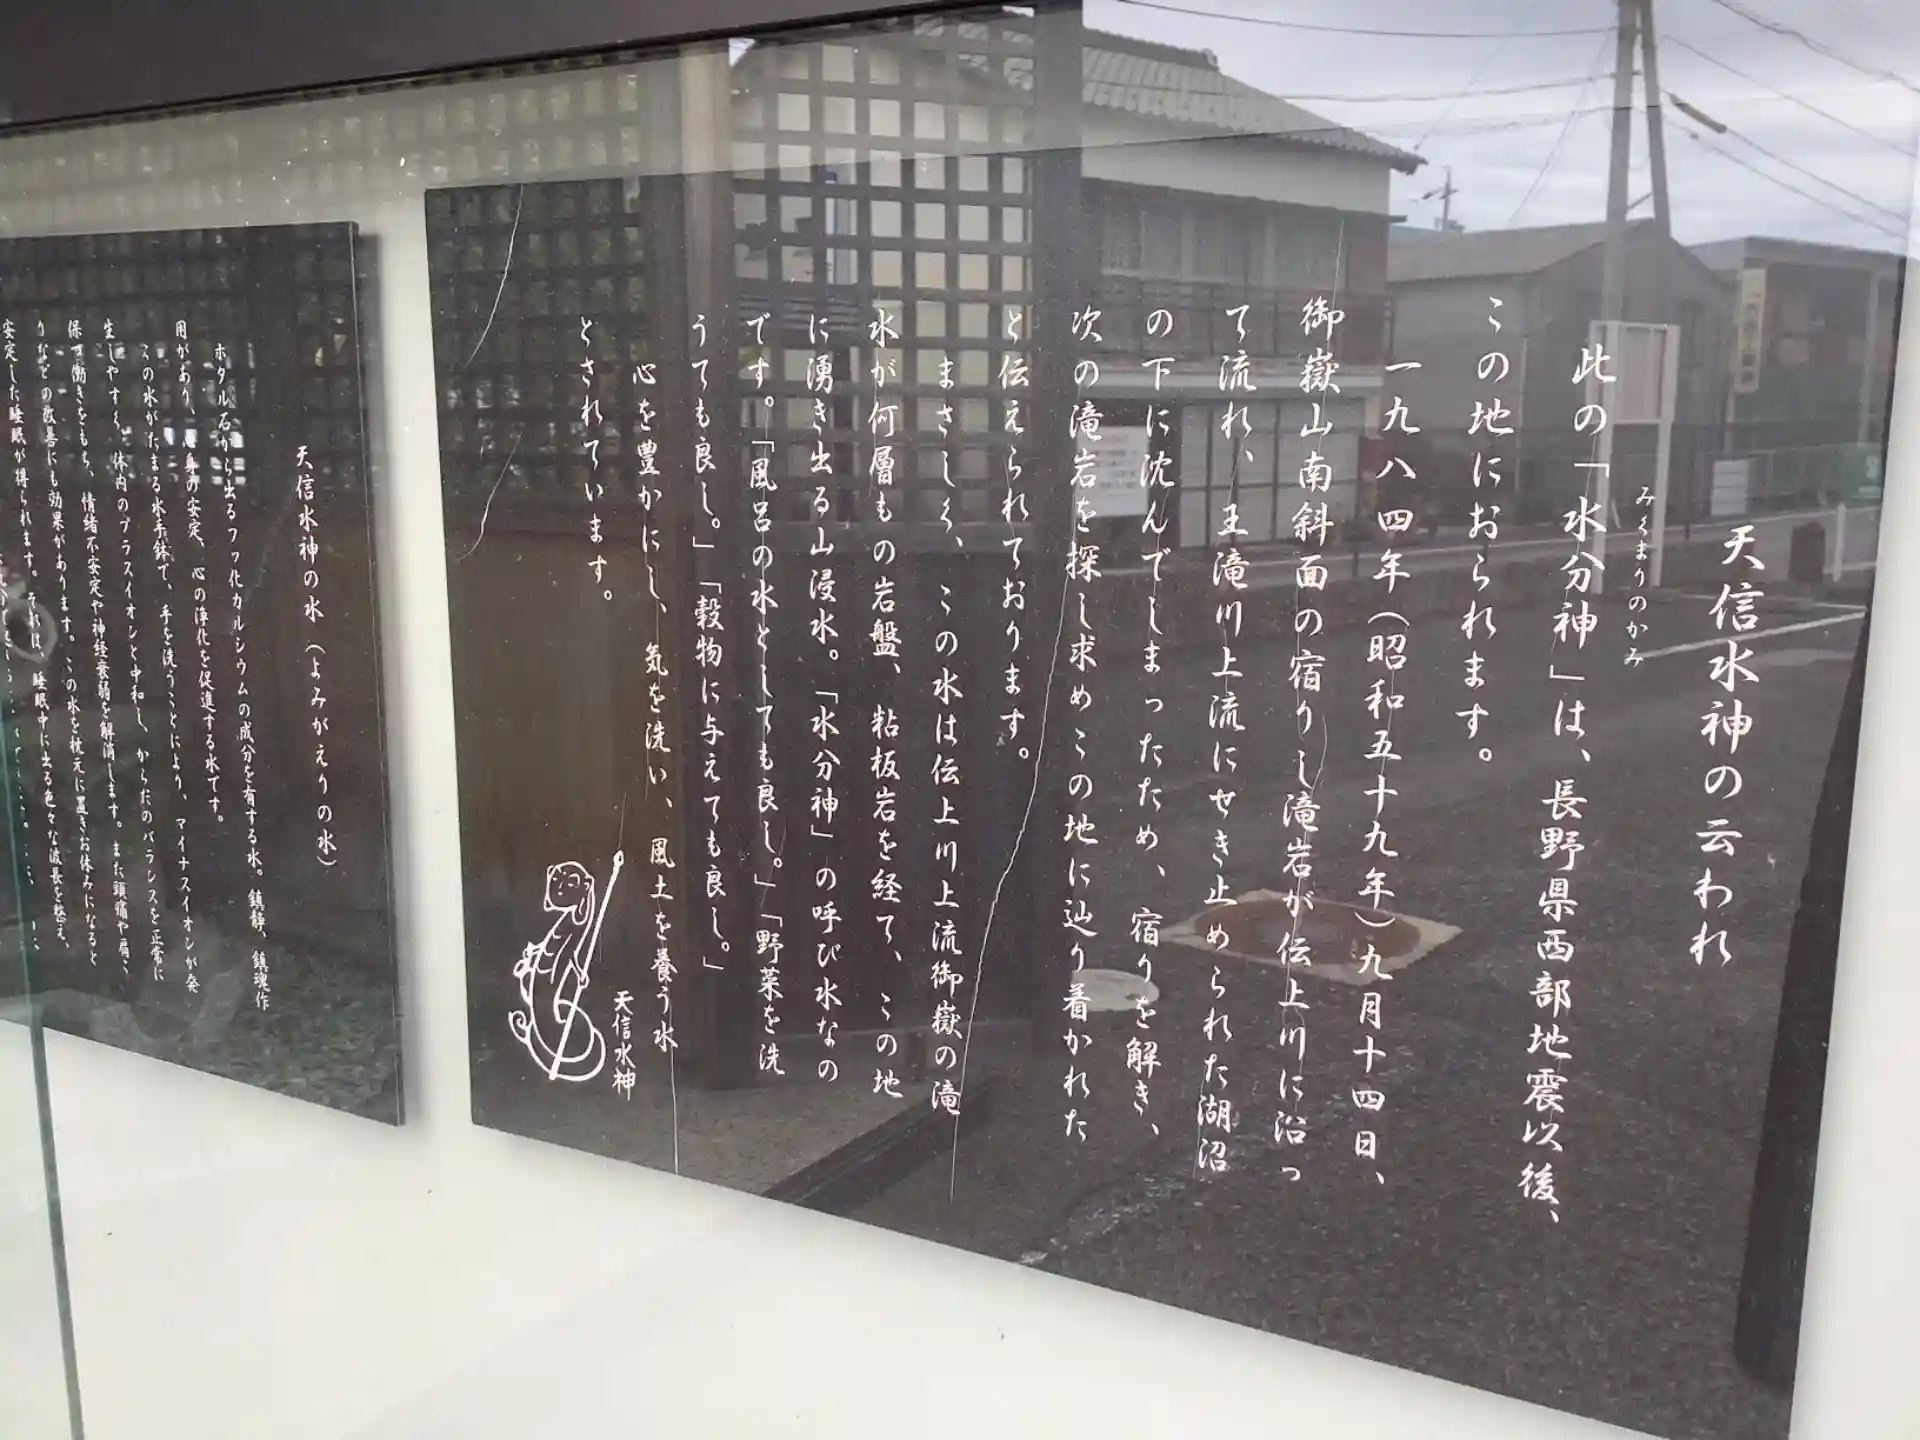 天信水神の云われ
みくまりのかみ
此の「水分神」は、長野県西部地震以後、
この地におられます。
一九八四年(昭和五十九年)九月十四日、
御嶽山南斜面の宿りし滝岩が伝上川に沿っ
て流れ、王滝川上流にせき止められた湖沼
の下に沈んでしまったため、宿りを解き、
次の滝岩を探し求めこの地に辿り着かれた
と伝えられております。
まさしく、この水は伝上川上流御嶽の滝
水が何層もの岩盤、粘板岩を経て、この地
に湧き出る山浸水。「水分神」の呼び水なの
です。「風呂の水としても良し。」「野菜を洗
うても良し。」「穀物に与えても良し。」
心を豊かにし、気を洗い、風土を養う水
とされています。
天信水神
天信水神の水(よみがえりの水)
ホタル石から出るフッ化カルシウムの成分を有する水。鎮静、鎮魂作
用があり、心身の安定、心の浄化を促進する水です。
この水がたまる水手鉢で、手を洗うことにより、マイナスイオンが発
生しやすく、体内のプラスイオンと中和し、からだのバランスを正常に
保つ働きをもち、情緒不安定や神経衰弱を解消します。また頭痛や肩こ
りなどの改善にも効果があります。この水を枕元に置きお休みになると
安定した睡眠が得られます。それは、睡眠中に出る色々な波長を整え、